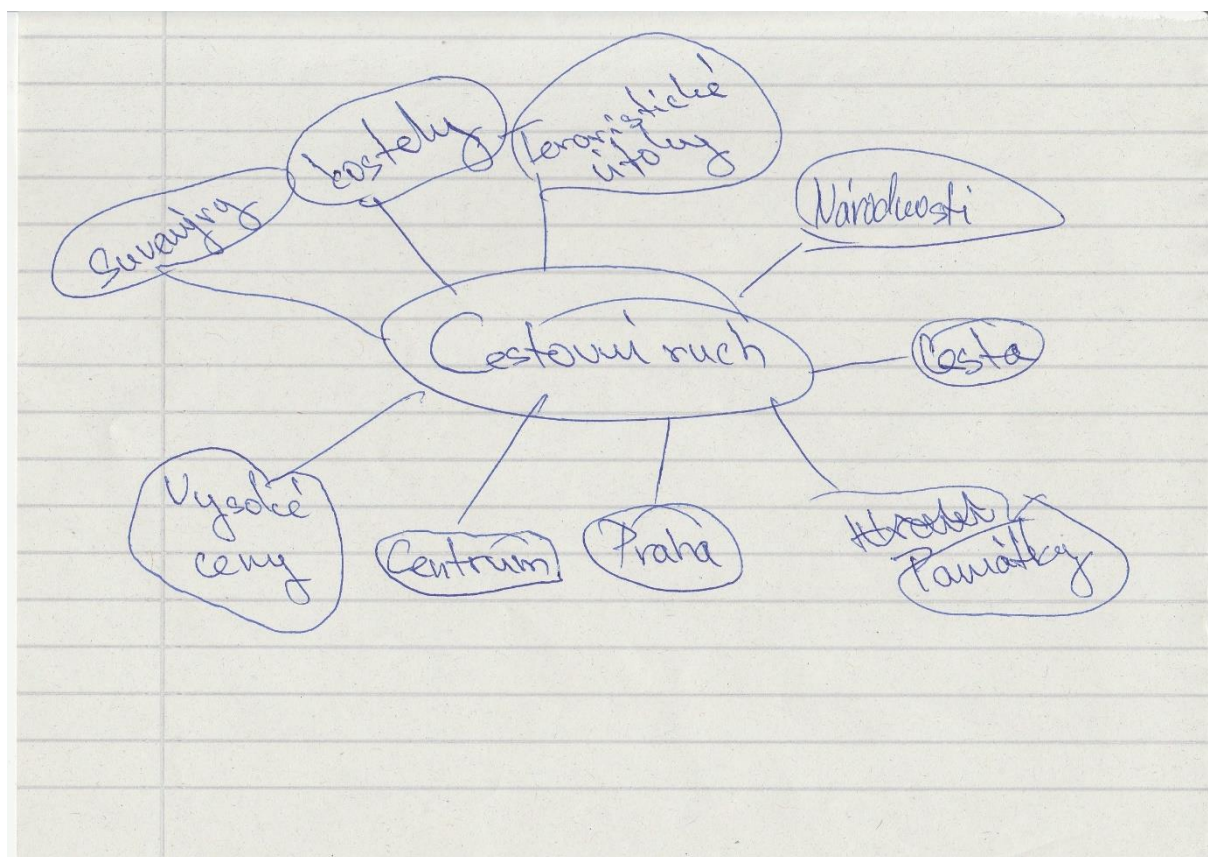 kostely
Teroristické
útoky
Suvenýry
Národnosti
Cestovní ruch
Cesta
Vysoké
ceny
Centrum
Praha
Památky